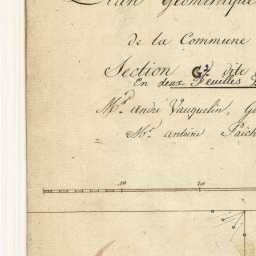 Plan Géométrique
de la Commune
Section G.2 dite
En deux Feuilles
Mr. André Vauquelin, Gé
Mr. Antoine